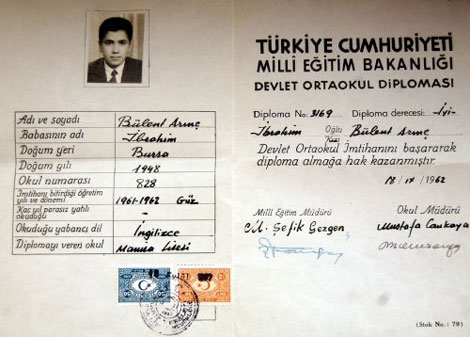 Adı ve soyadı Bülent Arınç
Babasının adı İbrahim
Doğum yeri Bursa
Doğum yılı 1948
Okul numarası 828
İmtihanı bitirdiği öğretim
yılı ve dönemi 1961-1962 Güz
Kaç yıl parasız yatılı
okuduğu
Okuduğu yabancı dil İngilizce
Diplomayı veren okul Manisa Lisesi
TÜRKİYE CUMHURİYETİ
MİLLİ EĞİTİM BAKANLIĞI
DEVLET ORTAOKUL DİPLOMASI
Diploma No: 3169 Diploma derecesi: İyi-
İbrahim Oğlu Bülent Arınç
Kızı
Devlet Ortaokul İmtihanını başararak
diploma almağa hak kazanmıştır.
/ıx/1962
Milli Eğitim Müdürü Okul Müdürü
Şefik Gezgen Mustafa Cankaya
(Stok No.: 79)